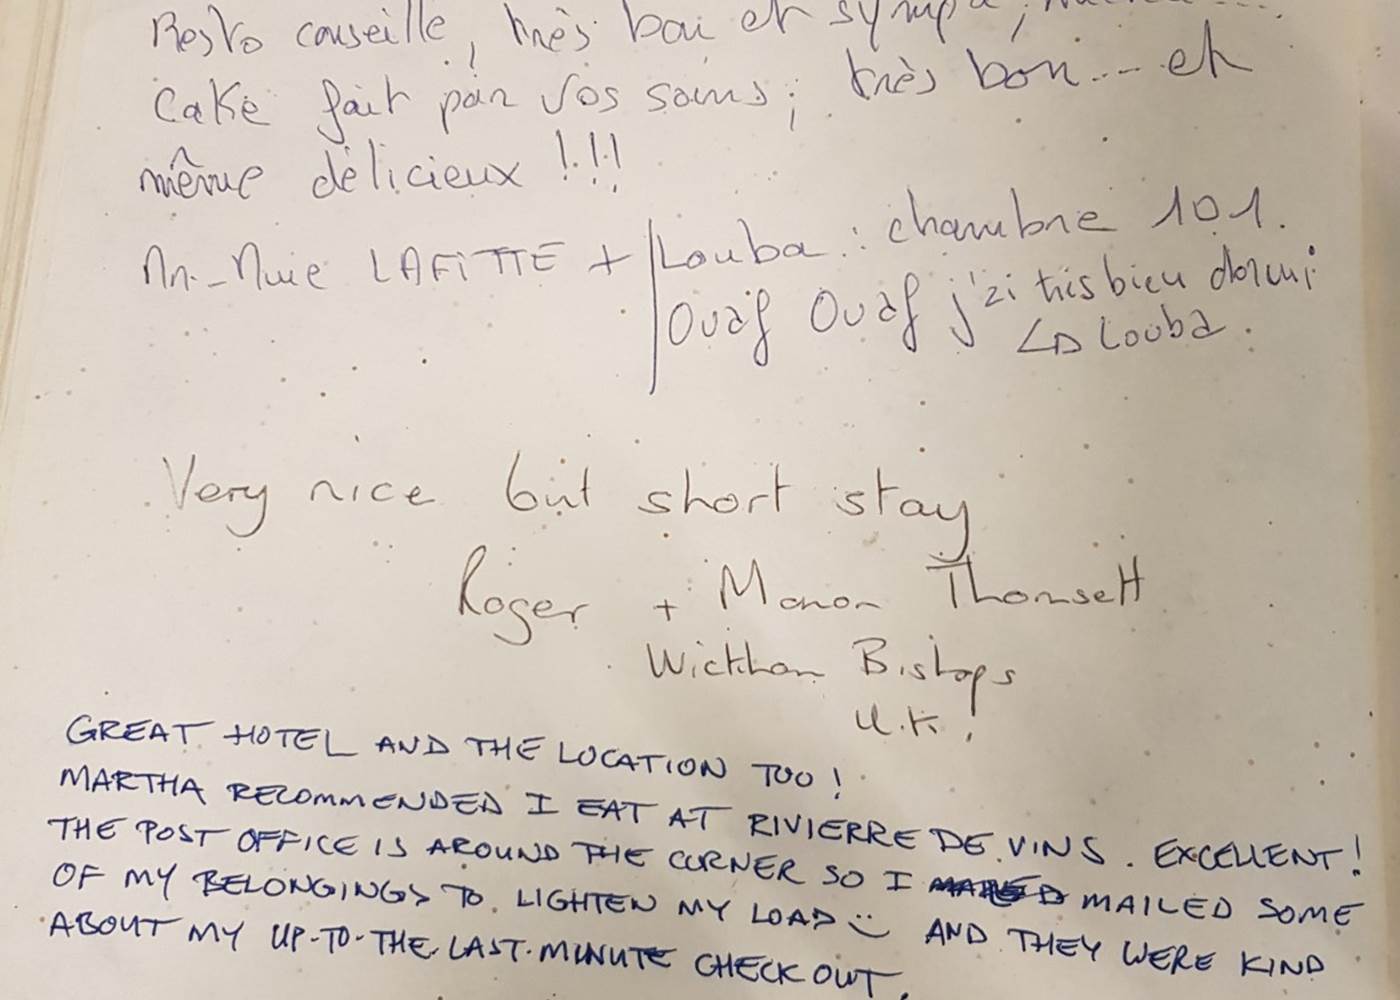 Resto conseillé, très bon et sympa,
Cake fait par vos soins; très bon... et
même délicieux !!!
LAFITTE + Louba : chambre 101.
Ouaf Ouaf j'ai très bien dormi
Louba.
Very nice but short stay
Roger + Manon Thomsett
Wickham Bishops
U.K.!
GREAT HOTEL AND THE LOCATION TOO!
MARTHA RECOMMENDED I EAT AT RIVIERRE DE VINS. EXCELLENT!
THE POST OFFICE IS AROUND THE CORNER SO I MAILED SOME
OF MY BELONGINGS TO LIGHTEN MY LOAD AND THEY WERE KIND
ABOUT MY UP-TO-THE-LAST-MINUTE CHECK OUT.